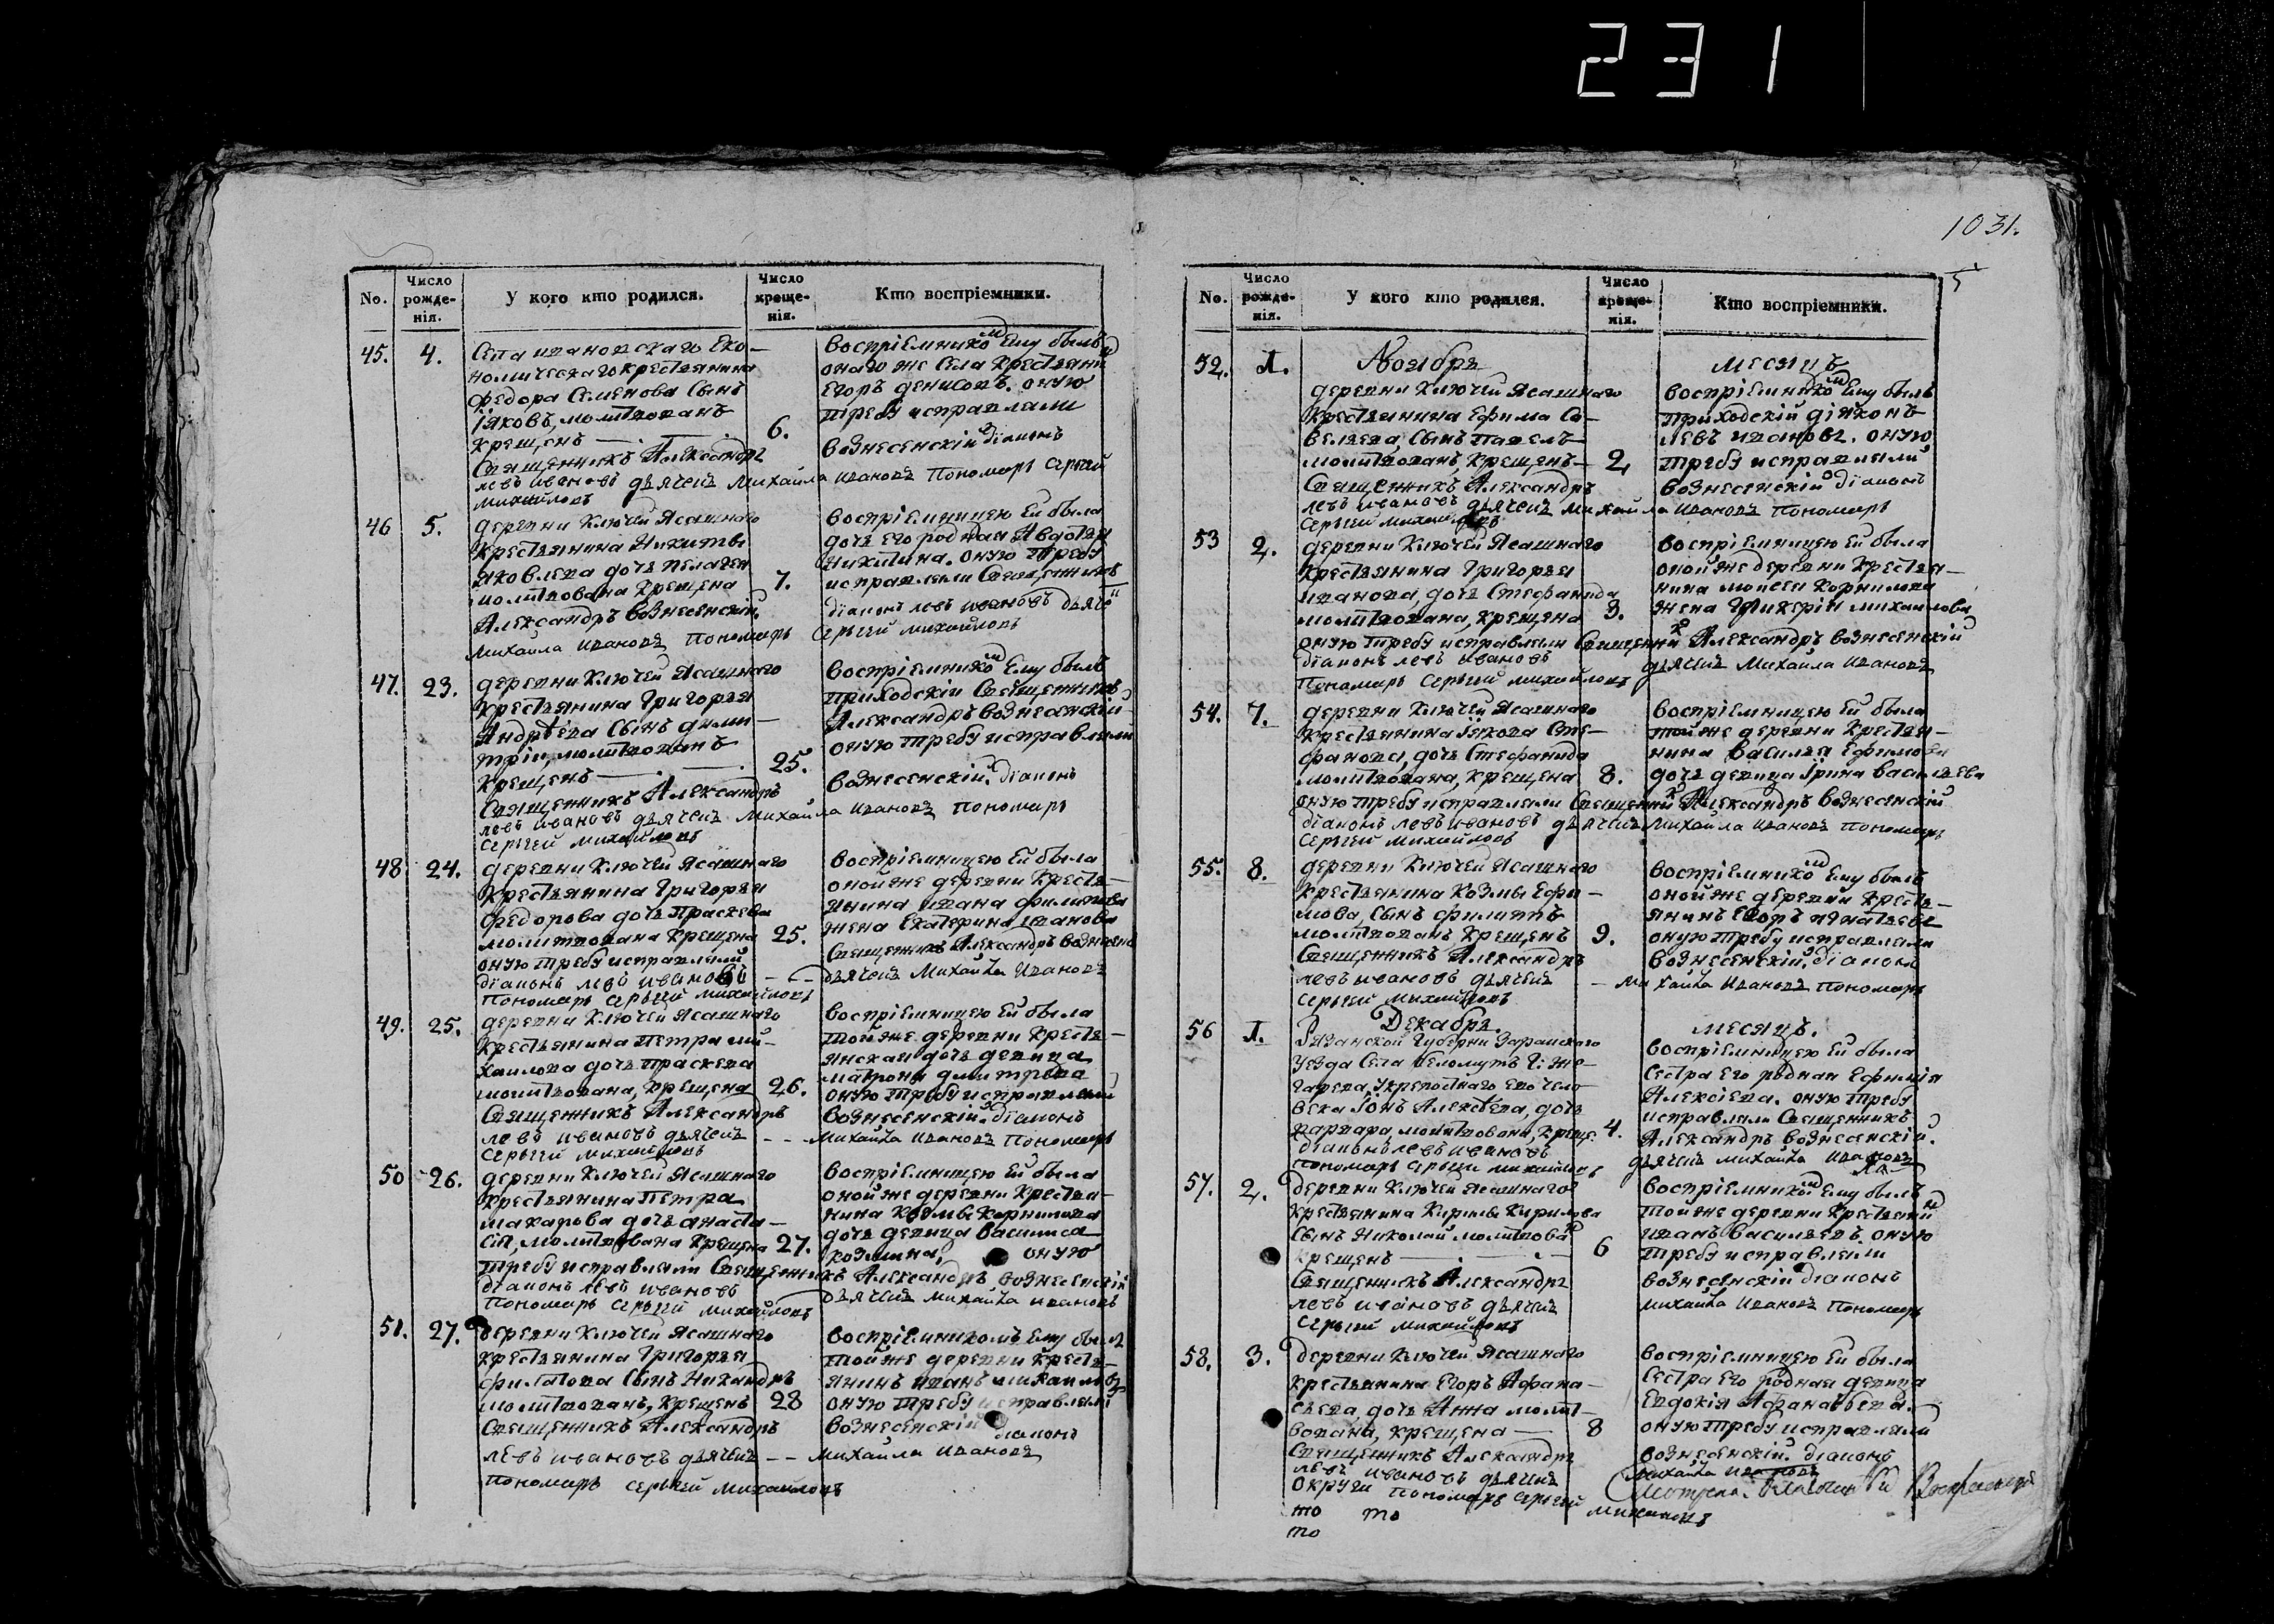 231
1031.
No. Число рожде-нія. У кого кто родился. Число креще-нія. Кто воспріемники.
45. 4. Села ивановскаго Еко-
номическаго крестьянина
Федора Семенова Сынъ
Іяковъ, молитвованъ
крещенъ 6.
Священникъ Александръ
левъ ивановъ дьячекъ Михайла ивановъ Пономарь Сергѣй
михайловъ
воспріемникомъ Ему былъ
онаго же Села крестьянинъ
Егоръ денисовъ. оную
требу исправляли
вознесенскій діаконъ
46 5. деревни Ключей Ясашнаго
крестьянина Никиты
яковлева дочь пелагея
молитвована крещена 7.
Александръ вознесенскій
Михайла ивановъ Пономарь Сергѣй михайловъ
воспріемницею Ей была
дочь его родная Авдотья
никитина. оную требу
исправляли Священникъ
діаконъ левъ ивановъ дьячекъ
47. 23. деревни Ключей Ясашнаго
крестьянина Григорья
Андрѣева Сынъ дими-
трій, молитвованъ
крещенъ 25.
Священникъ Александръ
левъ ивановъ дьячекъ Михайла ивановъ Пономарь
Сергѣй михайловъ
воспріемникомъ Ему былъ
приходскій Священникъ
Александръ вознесенскій
оную требу исправляли
вознесенскій. діаконъ
48 24. деревни Ключей Ясашнаго
крестьянина Григорья
Федорова дочь праскева
молитвована крещена 25.
оную требу исправляли
діаконъ левъ ивановъ дьячекъ Михайла ивановъ
Пономарь Сергѣй михайловъ
воспріемницею Ей была
оной же деревни Кресть-
янина ивана филипова
жена Екатерина иванова
Священникъ Александръ вознесенс
49. 25. деревни Ключей Ясашнаго
крестьянина Петра ми-
хаилова дочь праскева
молитвована, крещена 26.
Священникъ Александръ
левъ ивановъ дьячекъ Михайла ивановъ Пономарь
Сергѣй михайловъ
воспріемницею Ей была
той же деревни Кресть-
янская дочь девица
матрона дмитрева
оную требу исправляли
вознесенскій. діаконъ
50 26. деревни Ключей Ясашнаго
Крестьянина Петра
макарова дочь анаста-
сія, молитвована крещена 27.
требу исправляли Священникъ Александръ вознесенскій
діаконъ левъ ивановъ дьячекъ михайла ивановъ
Пономарь Сергѣй михайловъ
воспріемницею Ей была
оной же деревни Крестья-
нина козмы корнилова
дочь девица василиса
козмина, оную
51. 27. деревни Ключей Ясашнаго
крестьянина Григорья
филатова Сынъ Никандръ
молитвованъ, крещенъ 28
Священникъ Александръ
левъ ивановъ дьячекъ михайла ивановъ
пономарь Сергѣй михайловъ
воспріемникомъ Ему былъ
той же деревни Кресть-
янинъ иванъ михаиловъ
оную требу исправляли
вознесенскій діаконъ
No. Число рожде-нія. У кого кто родился. Число креще-нія. Кто воспріемники.
Ноябрь месяцъ
52. 1. деревни Ключей Ясашнаго
крестьянина Ефима Са-
вельева, Сынъ павелъ
молитвованъ, крещенъ 2
Священникъ Александръ
левъ ивановъ дьячекъ михайла ивановъ Пономарь
Сергѣй михайловъ
воспріемникомъ Ему былъ
приходскій діяконъ
левъ ивановъ. оную
требу исправляли
вознесенскій діаконъ
53 2. деревни Ключей Ясашнаго
крестьянина Григорья
иванова, дочь Стефанида
молитвована, крещена 3.
оную требу исправляли Священникъ Александръ вознесенскій
діаконъ левъ ивановъ дьячекъ Михайла ивановъ
Пономарь Сергѣй михайловъ
воспріемницею Ей была
оной же деревни крестья-
нина моисея корнилова
жена Гликерія михаилова
54. 7. деревни Ключей Ясашнаго
крестьянина Іякова Сте-
фанова, дочь Стефанида
молитвована, крещена 8.
оную требу исправляли Священникъ Александръ вознесенскій
діаконъ левъ ивановъ дьячекъ Михайла ивановъ Пономарь
Сергѣй михайловъ
воспріемницею Ей была
той же деревни Крестья-
нина василья Ефимова
дочь девица Ірина васильева
55. 8. деревни Ключей Ясашнаго
Крестьянина Козмы Ефи-
мова, Сынъ филиппъ
молитвованъ крещенъ 9.
Священникъ Александръ
левъ ивановъ дьячекъ Михайла ивановъ Пономарь
Сергѣй михайловъ
воспріемникомъ Ему былъ
оной же деревни Кресть-
янинъ Егоръ игнатьевъ
оную требу исправляли
вознесенскій. діаконъ
Декабрь месяцъ.
56 1. Рязанской Губерни Зарайскаго
уезда Села белоомутъ Г: Же-
крепостнаго Его чело-
века Іонъ Алексѣева, дочь
варвара, молитвована, креще. 4.
діаконъ левъ ивановъ дьячекъ михайла ивановъ
пономарь Сергѣй михайловъ
воспріемницею Ей была
Сестра Его родная Ефимія
Алексіева. оную требу
исправляли Священникъ
Александръ вознесенскій.
57. 2. деревни Ключей Ясашнаго
крестьянина Кирилы Кирилова
Сынъ Николай молитвованъ
крещенъ 6
Священникъ Александръ
левъ ивановъ дьячекъ
Сергѣй михайловъ
воспріемникомъ Ему былъ
той же деревни Крестьянинъ
иванъ васильевъ оную
требу исправляли
вознесенскій діаконъ
михайла ивановъ Пономарь
58. 3. деревни Ключей Ясашнаго
крестьянина Егоръ Афана-
сьева, дочь Анна молит-
вована, крещена 8
Священникъ Александръ
левъ ивановъ дьячекъ
Округи пономарь Сергѣй михайловъ
то то
то
воспріемницею Ей была
Сестра его родная девица
Евдокія Афанасьева.
оную требу исправляли
вознесенскій. діаконъ
михайла ивановъ